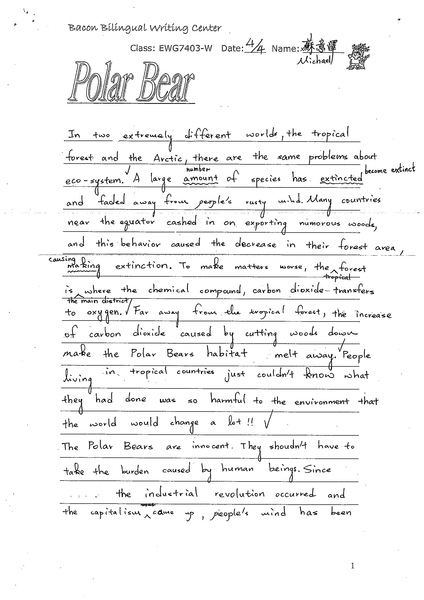 Bacon Bilingual Writing Center
Class: EWG7403-W Date: 4/4 Name: 蘇
Michael
Polar Bear
In two extremely different worlds, the tropical
forest and the Arctic, there are the same problems about
number become extinct
eco-system. A large amount of species has extincted
and faded away from people's rusty mind. Many countries
near the equator cashed in on exporting numorous woods,
and this behavior caused the decrease in their forest area,
causing
making extinction. To make matters worse, the forest
tropical
is where the chemical compound, carbon dioxide transfers
the main district
to oxygen. Far away from the tropical forest, the increase
of carbon dioxide caused by cutting woods down
make the Polar Bears habitat melt away. People
living in tropical countries just couldn't know what
they had done was so harmful to the environment that
the world would change a lot !!
The Polar Bears are innocent. They shoudn't have to
take the burden caused by human beings. Since
.... the industrial revolution occurred and
the capitalism came up, people's mind has been
1